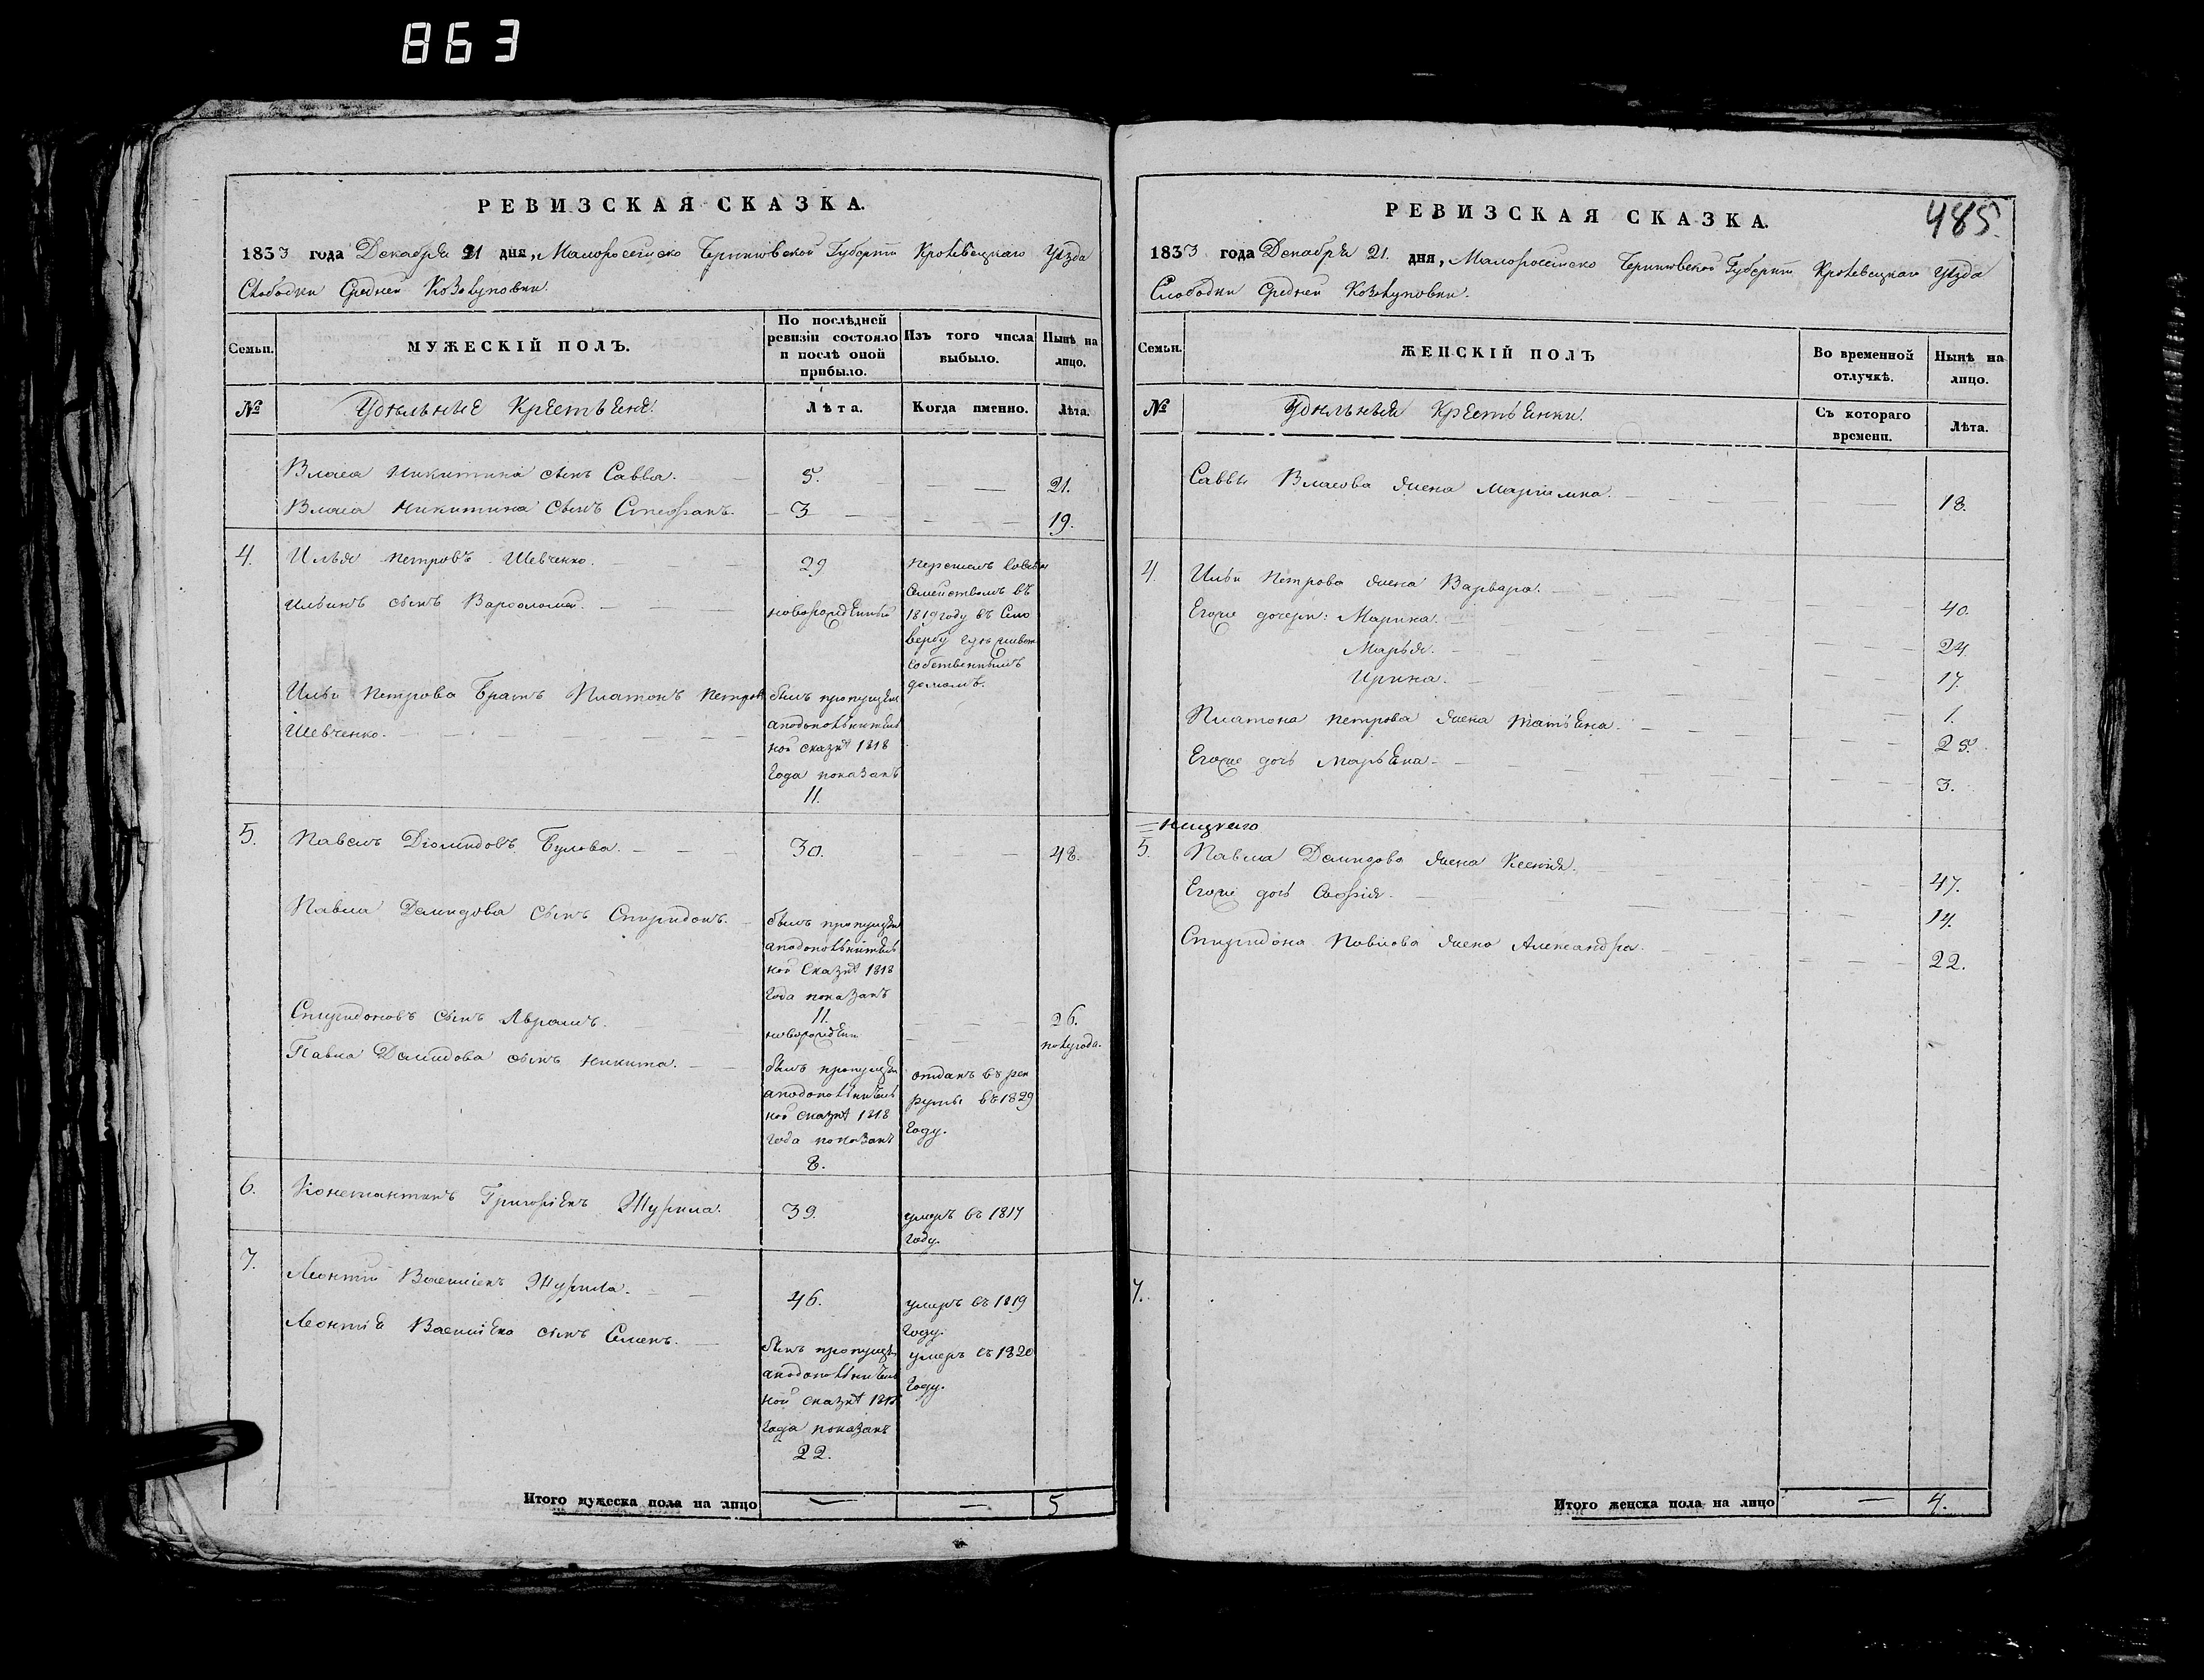 863
РЕВИЗСКАЯ СКАЗКА.
1833 года Декабря 21 дня, Малороссийско Черниговской Губерніи Кролевецкаго Уѣзда
Слободки Средней Козолуповки.
Семьи.
МУЖЕСКІЙ ПОЛЪ.
По послѣдней ревизіи состояло и послѣ оной прибыло.
Изъ того числа выбыло.
Нынѣ на лицо.
№
Удѣльные Крестьяне.
Лѣта.
Когда именно.
Лѣта.
Власа Никитина сынъ Савва. 5. 21.
Власа Никитина сынъ Стефанъ. 3 19.
4. Илья Петровъ Шевченко. 29
Ильинъ сынъ Варфоломей. новорожденный
семействомъ въ
1819 году въ
собственнымъ
домомъ.
Ильи Петрова Братъ Платонъ Петровъ
Шевченко.
былъ пропущен
а по дополнитель
ной сказкѣ 1818
Года показанъ
11.
5. Павелъ Діомидовъ Булова. 30. 48.
Павла Демидова сынъ Спиридонъ.
былъ пропущен
а по дополнитель
ной Сказкѣ 1818
Года показанъ
11. 26.
Спиридоновъ сынъ Аврамъ. новорожден полугода.
Павла Демидова сынъ Никита.
былъ пропущен
а по дополнитель
ной сказкѣ 1818
Года показанъ
8.
отданъ въ рек
руты въ 1829
Году.
6. Константинъ Григорьевъ Журила. 39.
умеръ въ 1817
Году.
7. Леонтій Васильевъ Журила. 46.
умеръ въ 1819
Году.
Леонтія Васильева сынъ Семенъ.
былъ пропущен
а по дополнитель
ной сказкѣ 1818
Года показанъ
22.
умеръ въ 1820
Году.
Итого мужеска пола на лицо — — 5
485.
РЕВИЗСКАЯ СКАЗКА.
1833 года Декабря 21. дня, Малороссійско Черниговской Губерніи Кролевецкаго Уѣзда
Слободки Средней Козолуповки.
Семьи.
ЖЕНСКІЙ ПОЛЪ
Во временной отлучкѣ.
Нынѣ на лицо.
№
Удѣльныя Крестьянки.
Съ котораго времени.
Лѣта.
Саввы Власова жена 18.
4. Ильи Петрова жена Варвара. 40.
Егоже дочери: Марина. 24.
Марья. 17.
Ирина. 1.
Платона Петрова жена Татьяна. 25.
Егоже дочь Марьяна. 3.
5. Павла Демидова жена Ксенія. 47.
Егоже дочь Софія. 14.
Спиридона Павлова жена Александра. 22.
7.
Итого женска пола на лицо — 4.